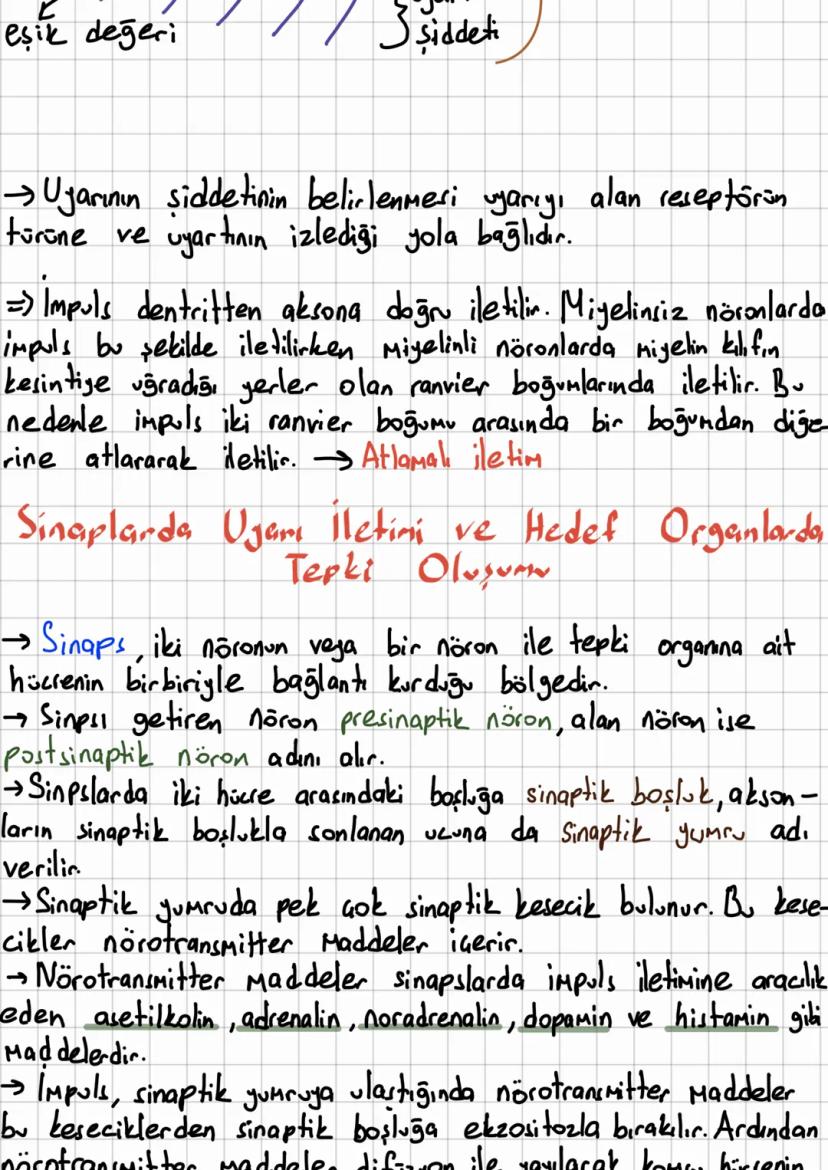 eşik değeri
şiddeti
→ Uyarının şiddetinin belirlenmesi uyarıyı alan reseptörün
türüne ve uyartının izlediği yola bağlıdır.
⇒ İmpuls dentritten aksona doğru iletilir. Miyelinsiz nöronlarda
impuls bu şekilde iletilirken miyelinli nöronlarda miyelin kılıfın
kesintiye uğradığı yerler olan ranvier boğumlarında iletilir. Bu
nedenle impuls iki ranvier boğumu arasında bir boğumdan diğe-
rine atlararak iletilir. → Atlamalı iletim
Sinaplarda Uyarı İletimi ve Hedef Organlarda
Tepki Oluşumu
→ Sinaps, iki nöronun veya bir nöron ile tepki organına ait
hücrenin birbiriyle bağlantı kurduğu bölgedir.
→ Sinpsı getiren nöron presinaptik nöron, alan nöron ise
postsinaptik nöron adını alır.
→ Sinpslarda iki hücre arasındaki boşluğa sinaptik boşluk, akson-
ların sinaptik boşlukla sonlanan ucuna da sinaptik yumru adı
verilir.
→ Sinaptik yumruda pek çok sinaptik kesecik bulunur. Bu kese-
cikler nörotransmitter maddeler içerir.
→ Nörotransmitter maddeler sinapslarda impuls iletimine aracılık
eden asetilkolin, adrenalin, noradrenalin, dopamin ve histamin gibi
maddelerdir.
→ İmpuls, sinaptik yumruya ulaştığında nörotransmitter maddeler
bu keseciklerden sinaptik boşluğa ekzositozla bırakılır. Ardından
nörotransmitter maddeler difüzyon ile yayılarak komşu hücrenin